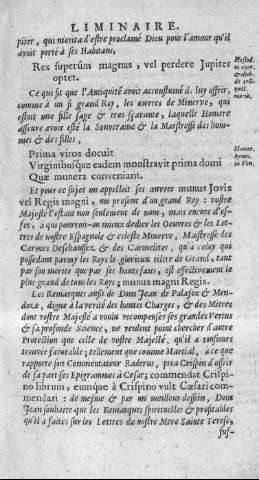 LIMINAIRE.
piter, qui merita d'estre proclamé Dieu pour l'amour qu'il
avoit porté à ses Habitans,
Rex superûm magnus, vel perdere Jupiter
optet.
Ce qui fit que l'Antiquité avoit accoustumé de luy offrir,
comme à un si grand Roy, les œuvres de Minerve, qui
estoit une fille sage & tres sçavante, laquelle Homere
asseure avoir esté la Souveraine & la Maistresse des hom-
mes & des filles,
Prima viros docuit
Virginibusque eadem monstravit prima domi
Quæ munera conveniant.
Et pour ce sujet on appelloit ses œuvres munus Jovis
vel Regis magni, un present d'un grand Roy : vostre
Majesté l'estant non seulement de nom, mais encore d'ef-
fet, à qui pourroit-on mieux dedier les Oeuvres & les Let-
tres de nostre Espagnole & celeste Minerve, Maistresse des
Carmes Deschaussez & des Carmelites, qu'à celuy qui
possedant parmy les Roys le glorieux tiltre de Grand, tant
par son merite que par ses hauts faits, est effectivement le
plus grand de tous les Roys; munus magni Regis.
Les Remarques aussi de Dom Jean de Palafox & Men-
doza, digne à la verité des hautes Charges, & des Mitres
dont vostre Majesté a voulu recompenser ses grandes Vertus
& sa profonde Science, ne veulent point chercher d'autre
Protection que celle de vostre Majesté, qu'il a tousjours
trouvée favorable; tellement que comme Martial, à ce que
rapporte son Commentateur Raderus, pria Crispin d'offrir
de sa part ses Epigrammes à Cesar; commendat Crispi-
no librum, eumque à Crispino vult Cæsari com-
mendari : de mesme & par un meilleur dessein, Dom
Jean souhaite que les Remarques spirituelles & profitables
qu'il a faites sur les Lettres de nostre Mere Sainte Terese,
jus-
Hesiod.
in oper.
& dieb.
Homer.
hymn.
in Ven.